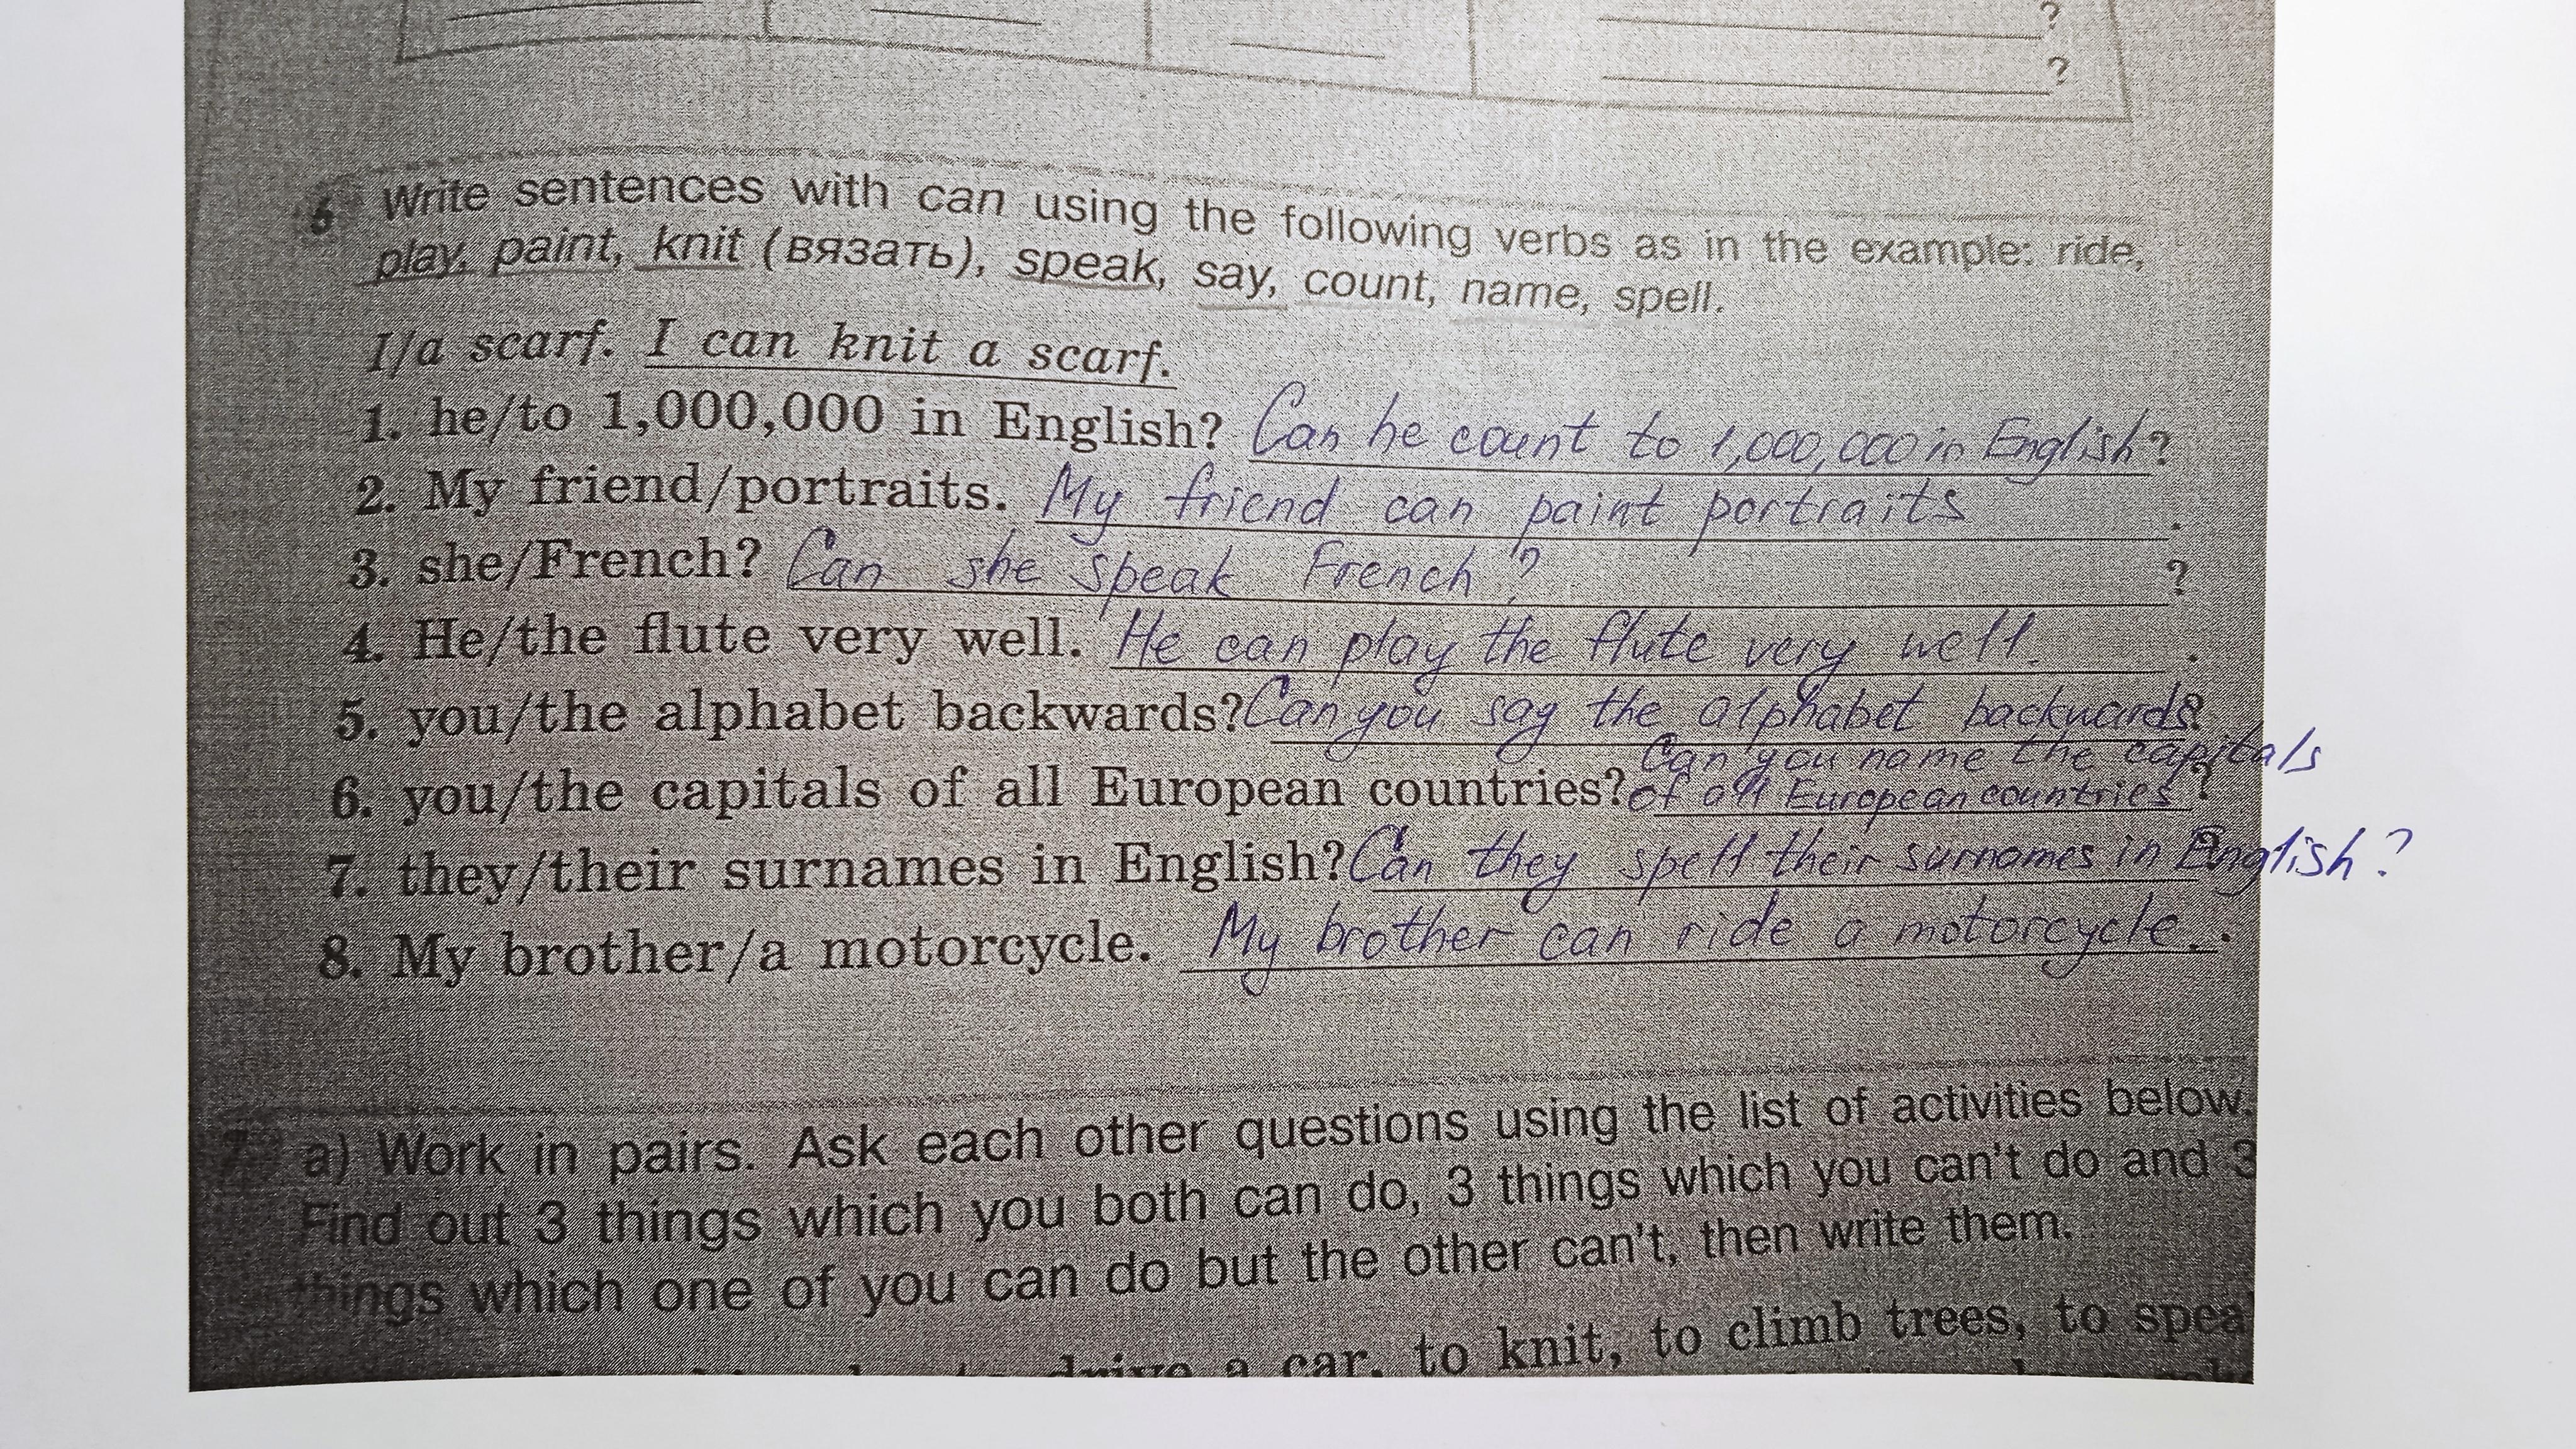 ?
?
6 Write sentences with can using the following verbs as in the example: ride,
play, paint, knit (вязать), speak, say, count, name, spell.
I/a scarf. I can knit a scarf.
1. he/to 1,000,000 in English? Can he count to 1,000,000 in English?
2. My friend/portraits. My friend can paint portraits .
3. she/French? Can she speak French ? ?
4. He/the flute very well. He can play the flute very well. .
5. you/the alphabet backwards? Can you say the alphabet backwards?
Can you name the capitals
6. you/the capitals of all European countries? of all European countries ?
7. they/their surnames in English? Can they spell their surnames in English?
8. My brother/a motorcycle. My brother can ride a motorcycle. .
7 a) Work in pairs. Ask each other questions using the list of activities below.
Find out 3 things which you both can do, 3 things which you can't do and 3
things which one of you can do but the other can't, then write them.
drive a car, to knit, to climb trees, to spea